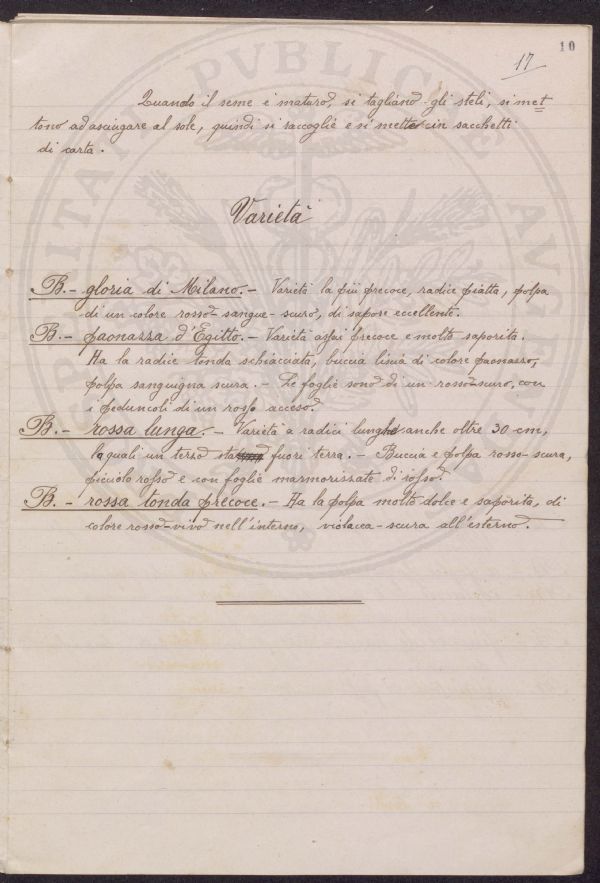 10
17
Quando il seme è maturo, si tagliano gli steli, si met=
tono ad asciugare al sole, quindi si raccoglie e si mette in sacchetti
di carta.
Varietà
B. - gloria di Milano. - Varietà la più precoce, radice piatta, polpa
di un colore rosso-sangue-scuro, di sapore eccellente.
B. - paonazza d'Egitto. - Varietà assai precoce e molto saporita.
Ha la radice tonda schiacciata, buccia liscia di colore paonazzo,
polpa sanguigna scura. - Le foglie sono di un rosso-scuro, con
i peduncoli di un rosso acceso.
B. - rossa lunga. - Varietà a radici lunghe anche oltre 30 cm,
la quali un terzo sta fuori terra. - Buccia e polpa rosso-scura,
picciolo rosso e con foglie marmorissate di rosso.
B. - rossa tonda precoce. - Ha la polpa molto dolce e saporita, di
colore rosso-vivo nell'interno, violacea-scura all'esterno.